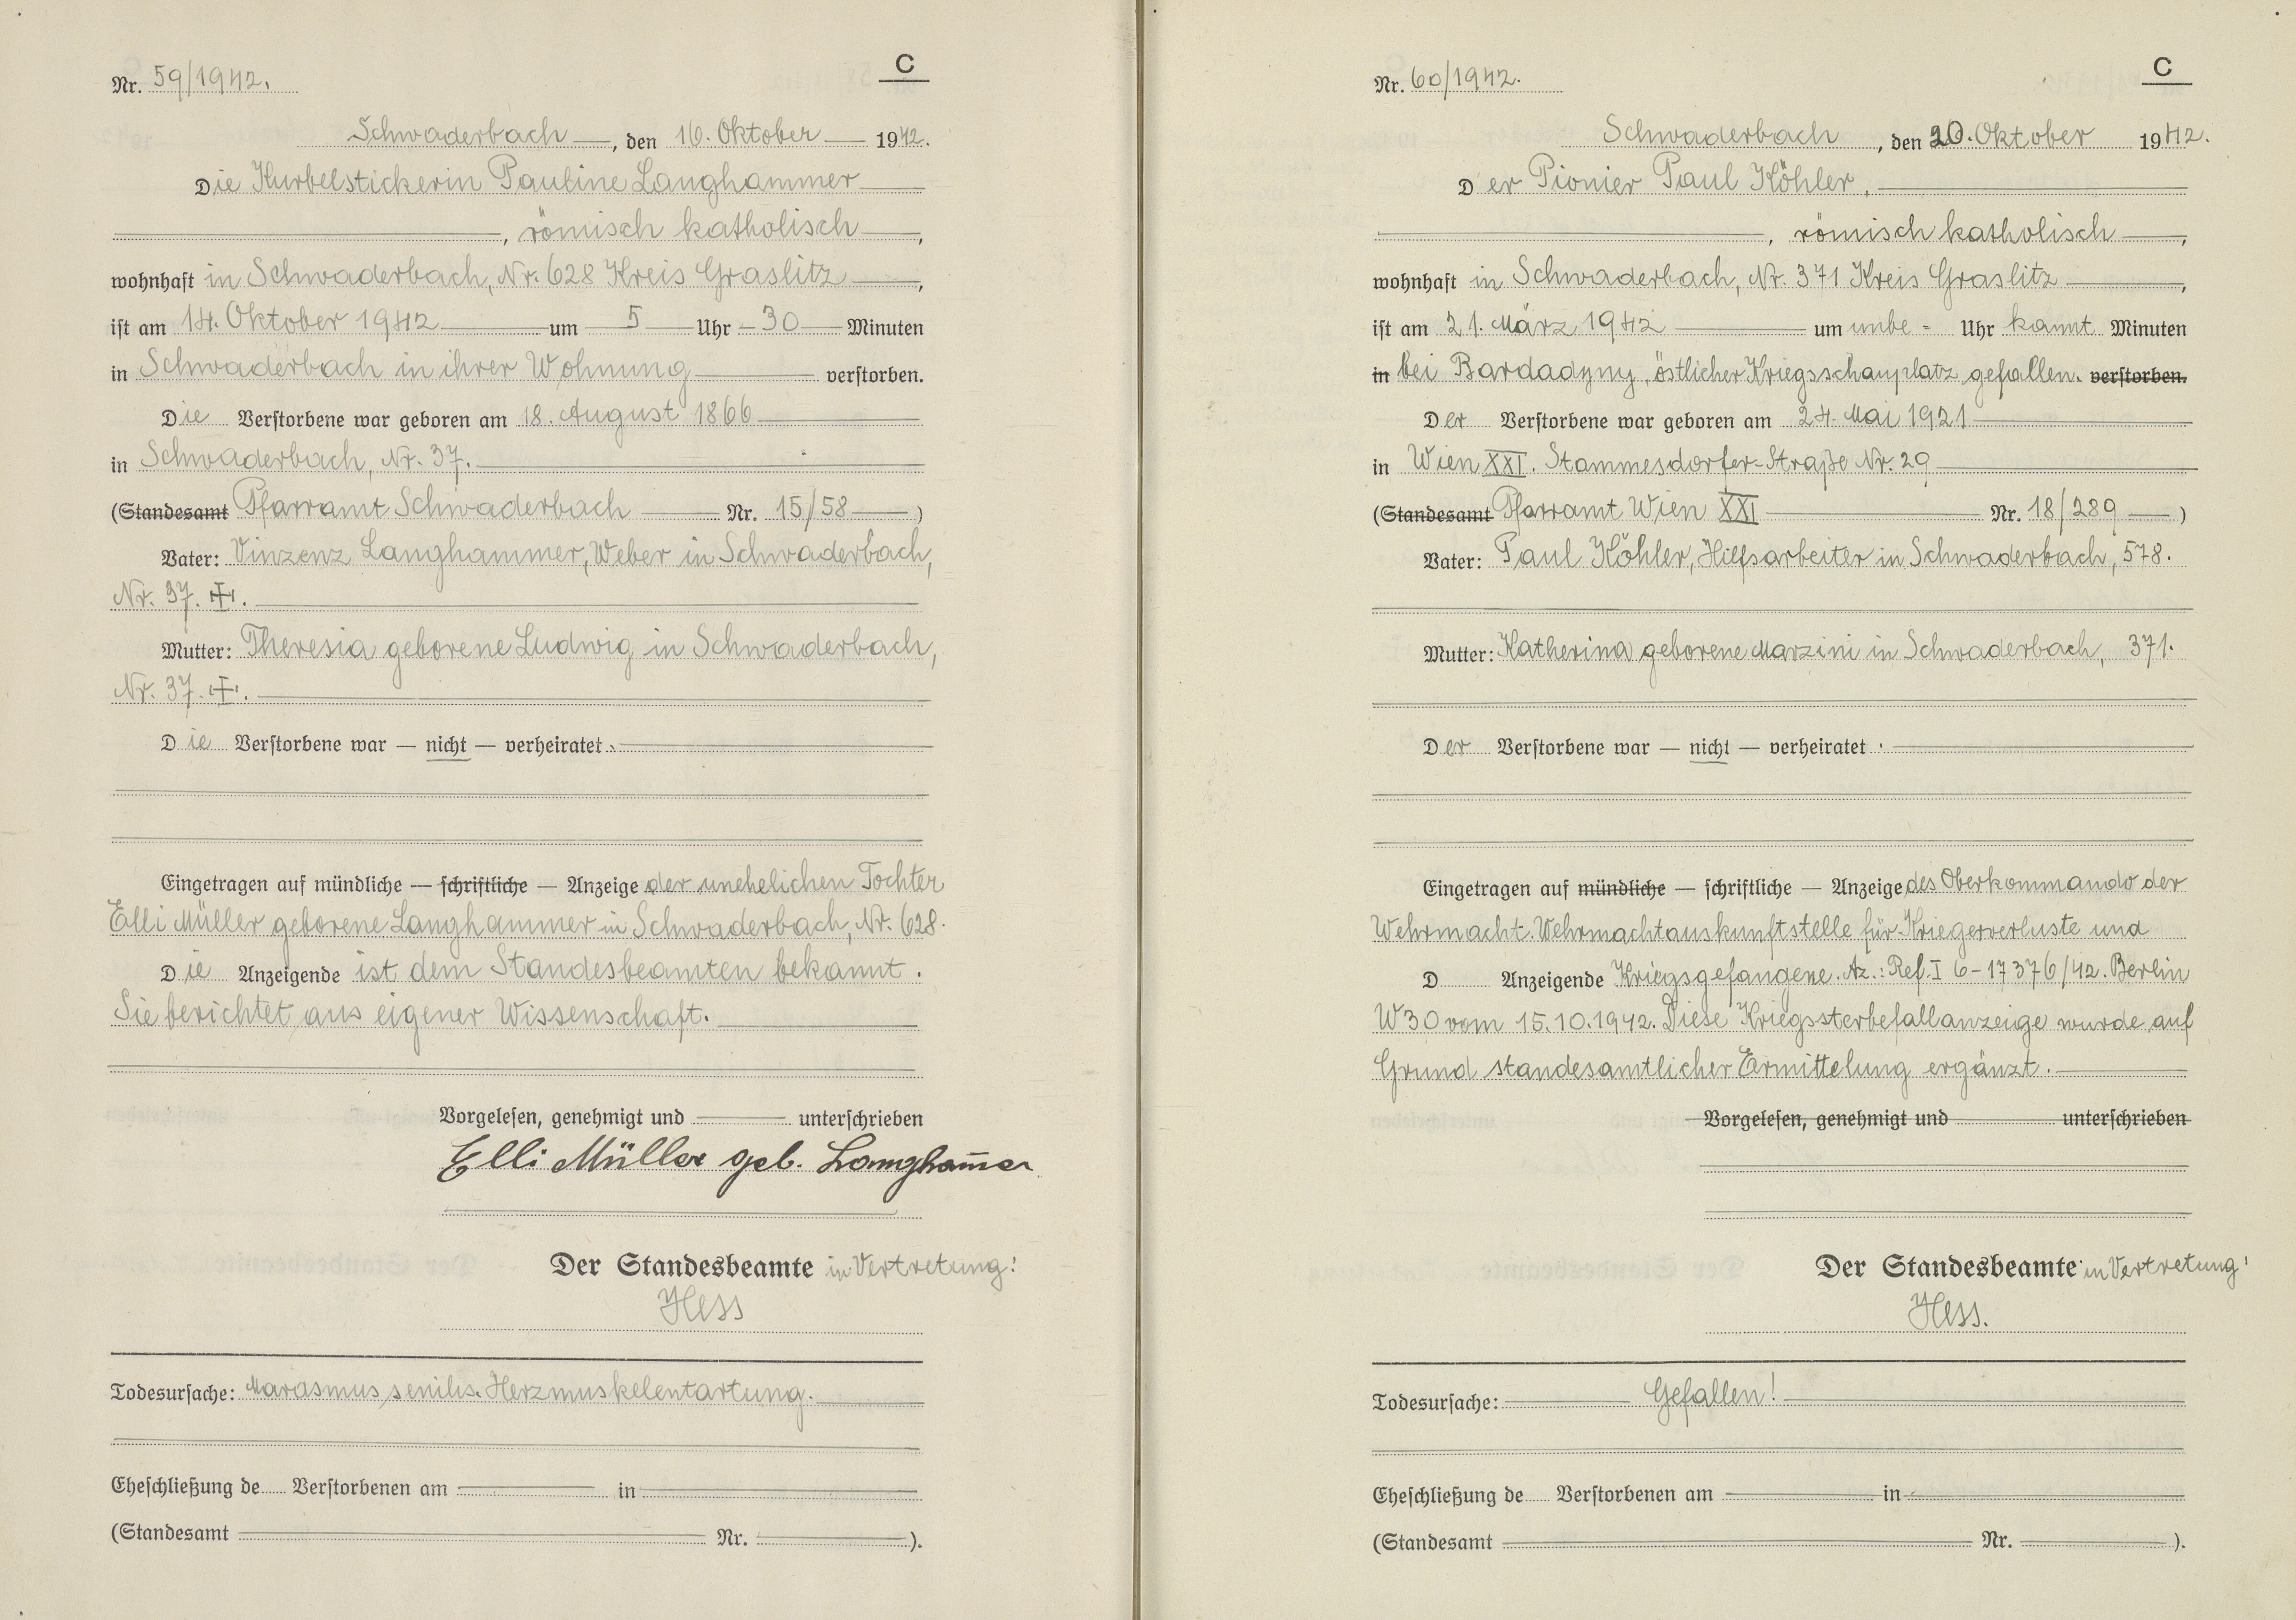 C
Nr. 59/1942.
Schwaderbach, den 16. Oktober 1942.
Die Kurbelstickerin Pauline Langhammer
, römisch katholisch,
wohnhaft in Schwaderbach, Nr. 628 Kreis Graslitz,
ist am 14. Oktober 1942 um 5 Uhr 30 Minuten
in Schwaderbach in ihrer Wohnung verstorben.
Die Verstorbene war geboren am 18. August 1866
in Schwaderbach, Nr. 37.
(Standesamt Pfarramt Schwaderbach Nr. 15/58)
Vater: Vinzenz Langhammer, Weber in Schwaderbach,
Nr. 37. ✝.
Mutter: Theresia geborene Ludwig in Schwaderbach,
Nr. 37. ✝.
Die Verstorbene war — nicht — verheiratet.
Eingetragen auf mündliche — schriftliche — Anzeige der unehelichen Tochter
Elli Müller geborene Langhammer in Schwaderbach, Nr. 628.
Die Anzeigende ist dem Standesbeamten bekannt.
Sie berichtet aus eigener Wissenschaft.
Vorgelesen, genehmigt und unterschrieben
Elli Müller geb. Langham̅er
Der Standesbeamte in Vertretung!
Hess
Todesursache: Marasmus senilis. Herzmuskelentartung.
Eheschließung de Verstorbenen am in
(Standesamt Nr. ).
C
Nr. 60/1942.
Schwaderbach, den 20. Oktober 1942.
Der Pionier Paul Köhler,
, römisch katholisch,
wohnhaft in Schwaderbach, Nr. 371 Kreis Graslitz,
ist am 21. März 1942 um unbe- Uhr kannt Minuten
in bei Bardadyny, östlicher Kriegsschauplatz gefallen. verstorben.
Der Verstorbene war geboren am 24. Mai 1921
in Wien XXI. Stammesdorfer-Straße Nr. 29
(Standesamt Pfarramt Wien XXI Nr. 18/289)
Vater: Paul Köhler, Hilfsarbeiter in Schwaderbach, 578.
Mutter: Katherina geborene Marzini in Schwaderbach, 371.
Der Verstorbene war — nicht — verheiratet.
Eingetragen auf mündliche — schriftliche — Anzeige des Oberkommando der
Wehrmacht. Wehrmachtauskunftstelle für Kriegerverluste und
D Anzeigende Kriegsgefangene. Az.: Ref. I 6-17376/42. Berlin
W 30 vom 15.10.1942. Diese Kriegssterbefallanzeige wurde auf
Grund standesamtlicher Ermittelung ergänzt.
Vorgelesen, genehmigt und unterschrieben
Der Standesbeamte in Vertretung!
Hess.
Todesursache: Gefallen!
Eheschließung de Verstorbenen am in
(Standesamt Nr. ).